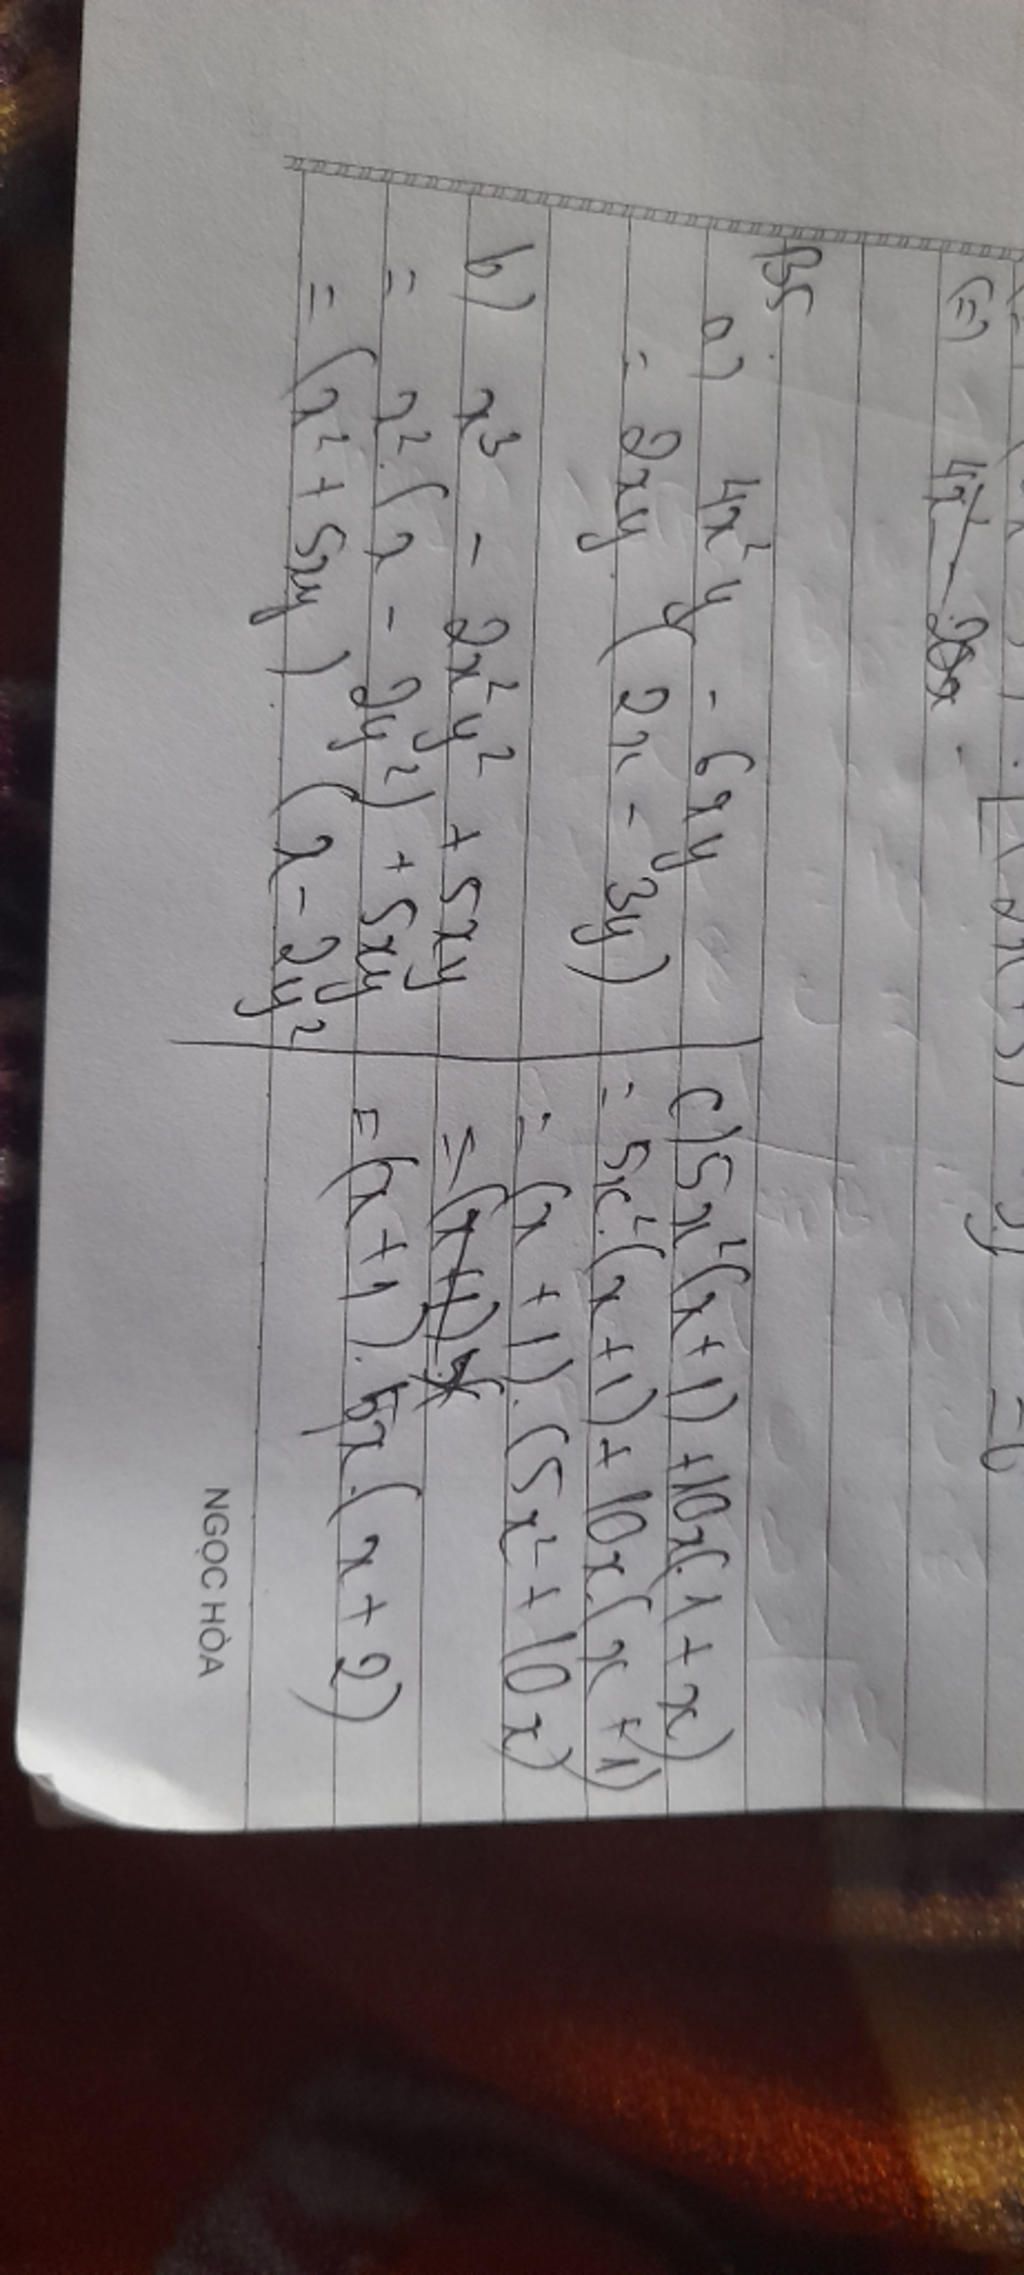 (=) 4x² - 28x -
B5
a) 4x²y - 6xy
= 2xy. (2x - 3y)
b) x³ - 2x²y² + 5xy
= x².(x - 2y²) + 5xy
= (x² + 5xy) (x - 2y²
c) 5x²(x+1) + 10x(1+x)
= 5x².(x+1) + 10x.(x+1)
= (x+1).(5x² + 10x)
= (x+1).5x(
= (x+1).5x.(x+2)
NGỌC HÒA